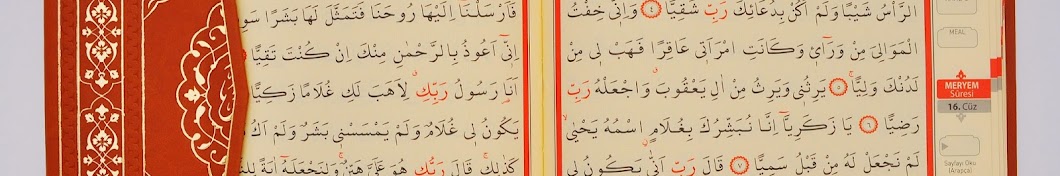 الرَّأْسُ شَيْبًا وَلَمْ اَكُنْ بِدُعَائِكَ رَبِّ شَقِيًّا ﴿٤﴾ وَاِنّ۪ي خِفْتُ
الْمَوَالِيَ مِنْ وَرَٓائ۪ي وَكَانَتِ امْرَاَت۪ي عَاقِرًا فَهَبْ ل۪ي مِنْ
لَدُنْكَ وَلِيًّاۙ ﴿٥﴾ يَرِثُن۪ي وَيَرِثُ مِنْ اٰلِ يَعْقُوبَۗ وَاجْعَلْهُ رَبِّ
رَضِيًّا ﴿٦﴾ يَا زَكَرِيَّٓا اِنَّا نُبَشِّرُكَ بِغُلَامٍۨ اسْمُهُ يَحْيٰىۙ
لَمْ نَجْعَلْ لَهُ مِنْ قَبْلُ سَمِيًّا ﴿٧﴾ قَالَ رَبِّ اَنّٰى يَكُونُ ل۪ي
فَاَرْسَلْنَٓا اِلَيْهَا رُوحَنَا فَتَمَثَّلَ لَهَا بَشَرًا
اِنّ۪ٓي اَعُوذُ بِالرَّحْمٰنِ مِنْكَ اِنْ كُنْتَ تَقِيًّا
اَنَا۬ رَسُولُ رَبِّكِۗ لِاَهَبَ لَكِ غُلَامًا زَكِيًّا
يَكُونُ ل۪ي غُلَامٌ وَلَمْ يَمْسَسْن۪ي بَشَرٌ وَلَمْ
كَذٰلِكِۚ قَالَ رَبُّكِ هُوَ عَلَيَّ هَيِّنٌۚ وَلِنَجْعَلَهُٓ اٰيَةً
MEAL
MERYEM
Sûresi
16. Cüz
Sayfayı Oku
(Arapça)